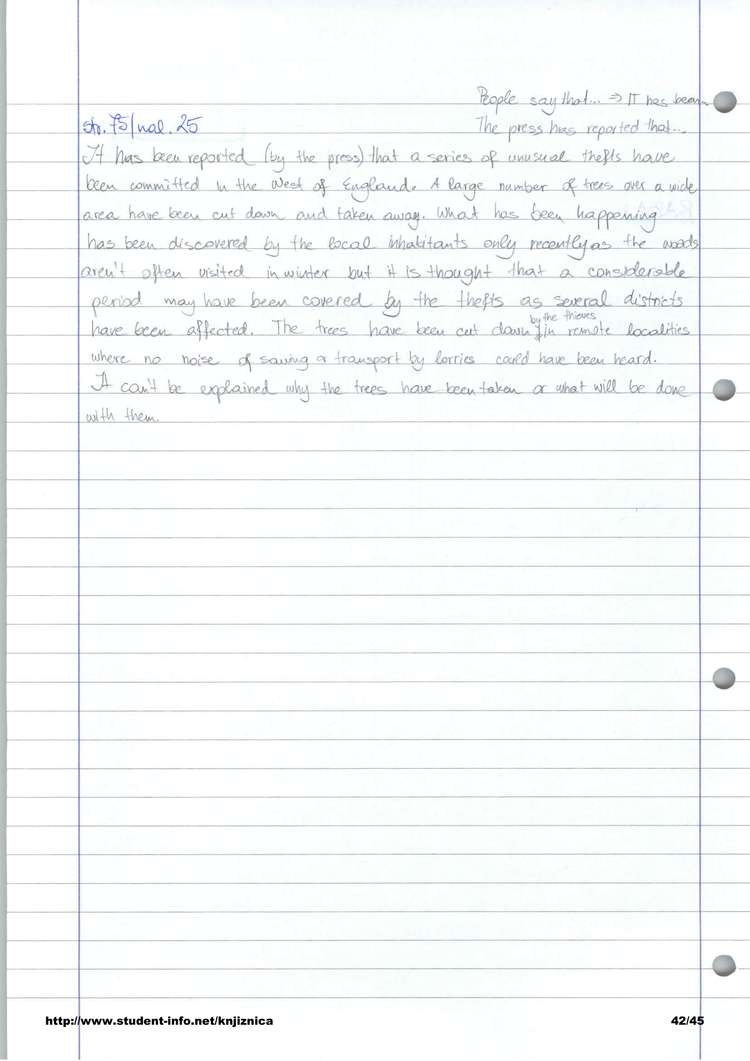 People say that... ⇒ IT has been
The press has reported that...
str. 75/nal. 25
It has been reported (by the press) that a series of unusual thefts have
been committed in the West of England. A large number of trees over a wide
area have been cut down and taken away. What has been happening
has been discovered by the local inhabitants only recently as the woods
aren't often visited in winter but it is thought that a considerable
period may have been covered by the thefts as several districts
by the thieves
have been affected. The trees have been cut down in remote localities
where no noise of sawing or transport by lorries could have been heard.
It can't be explained why the trees have been taken or what will be done
with them.
http://www.student-info.net/knjiznica 42/45